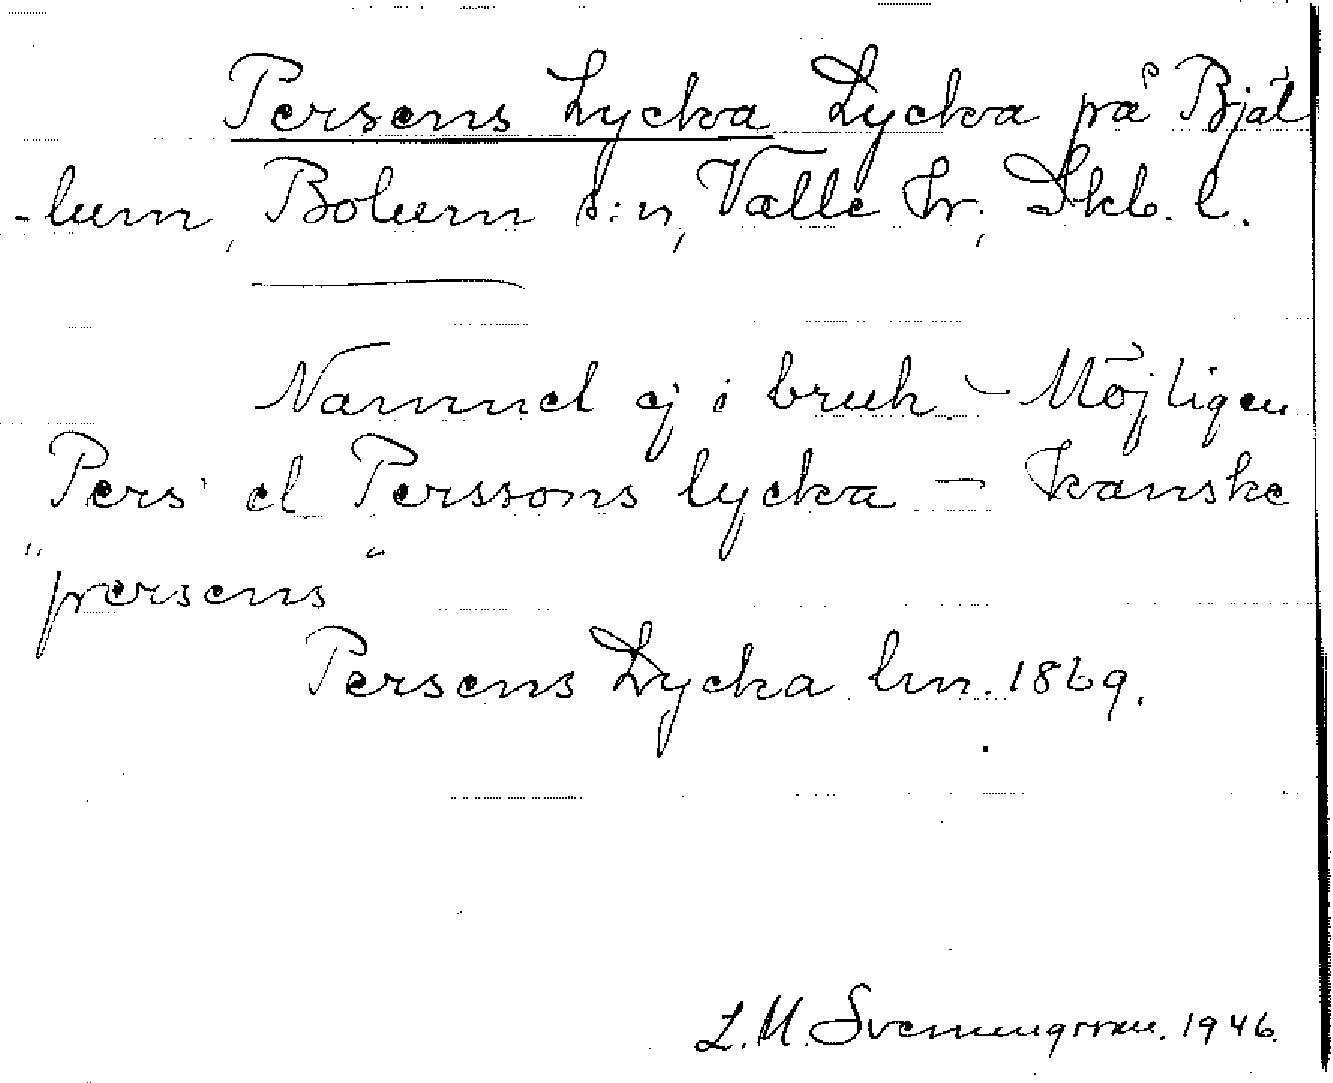 Persens Lycka Lycka på Bjäl
-lum, Bolum s:n, Valle hr; Skb. l.
Namnet ej i bruk – Möjligen
Pers' el Perssons lycka – Kanske
"persens"
Persens Lycka lm. 1869.
L. M. Svenungsson. 1946.